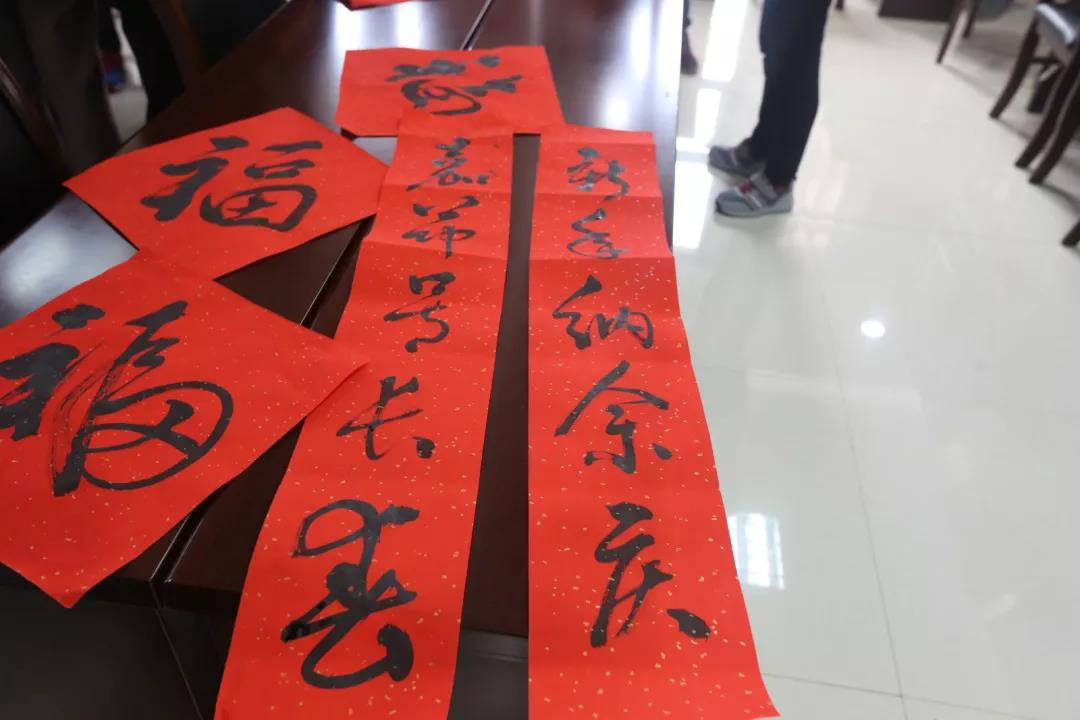 新年纳余庆
嘉节号长春
福
福